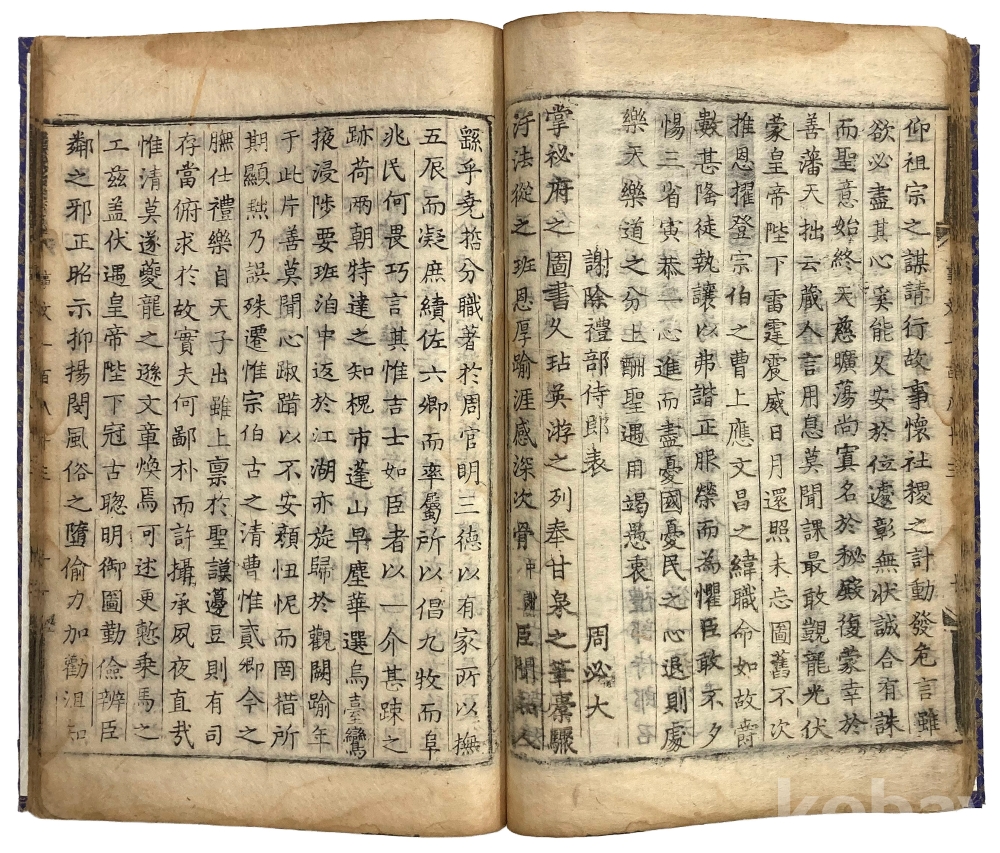 仰祖宗之謀請行故事懷社稷之計動發危言雖
欲必盡其心奚能久安於位遽彰無狀誠合有誅
而聖意始終天慈曠蕩尚寘名於秘殿復蒙幸於
善藩天拙云藏人言用息莫聞課最敢觀龍光伏
蒙皇帝陛下雷霆震威日月還照未忘圖舊不次
推恩擢登宗伯之曹上應文昌之緯職命如故爵
數甚隆徒執讓以弗諧正服榮而為懼臣敢不夕
惕三省寅恭一心進而盡憂國憂民之心退則處
樂天樂道之分上酬聖遇用竭愚衷
謝除禮部侍郎表 周必大
掌祕府之圖書久玷英游之列奉甘泉之筆橐驟
汙法從之班恩厚踰涯感深次骨中謝臣聞
繇乎堯哲分職著於周官明三德以有家所以撫
五辰而凝庶績佐六卿而率屬所以倡九牧而阜
兆民何畏巧言其惟吉士如臣者以一介甚踈之
跡荷兩朝特達之知槐市蓬山早塵華選烏臺鸞
掖浸陟要班洎申返於江湖亦旋歸於觀闕踰年
于此片善莫聞心踧踖以不安顏忸怩而罔措所
期顯黜乃誤殊遷惟宗伯古之清曹惟貳卿今之
膴仕禮樂自天子出雖上禀於聖謨籩豆則有司
存當俯求於故實夫何鄙朴而許攝承夙夜直哉
惟清莫遂夔龍之遜文章煥焉可述更慙乗馬之
工茲盖伏遇皇帝陛下冠古聰明御圖勤儉辨臣
鄰之邪正昭示抑揚閔風俗之墮偷力加勸沮知
kobay